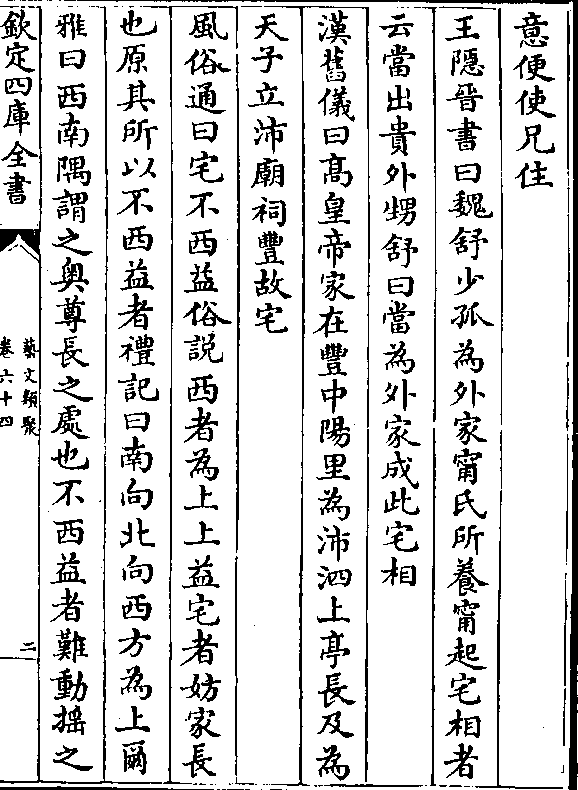 意便使兄住
王隱晉書曰魏舒少孤為外家甯氏所養甯起宅相者
云當出貴外甥舒曰當為外家成此宅相
漢舊儀曰髙皇帝家在豐中陽里為沛泗上亭長及為
天子立沛廟祠豐故宅
風俗通曰宅不西益俗説西者為上上益宅者妨家長
也原其所以不西益者禮記曰南向北向西方為上爾
雅曰西南隅謂之奥尊長之處也不西益者難動揺之
欽定四庫全書
藝文類聚
卷六十四
二